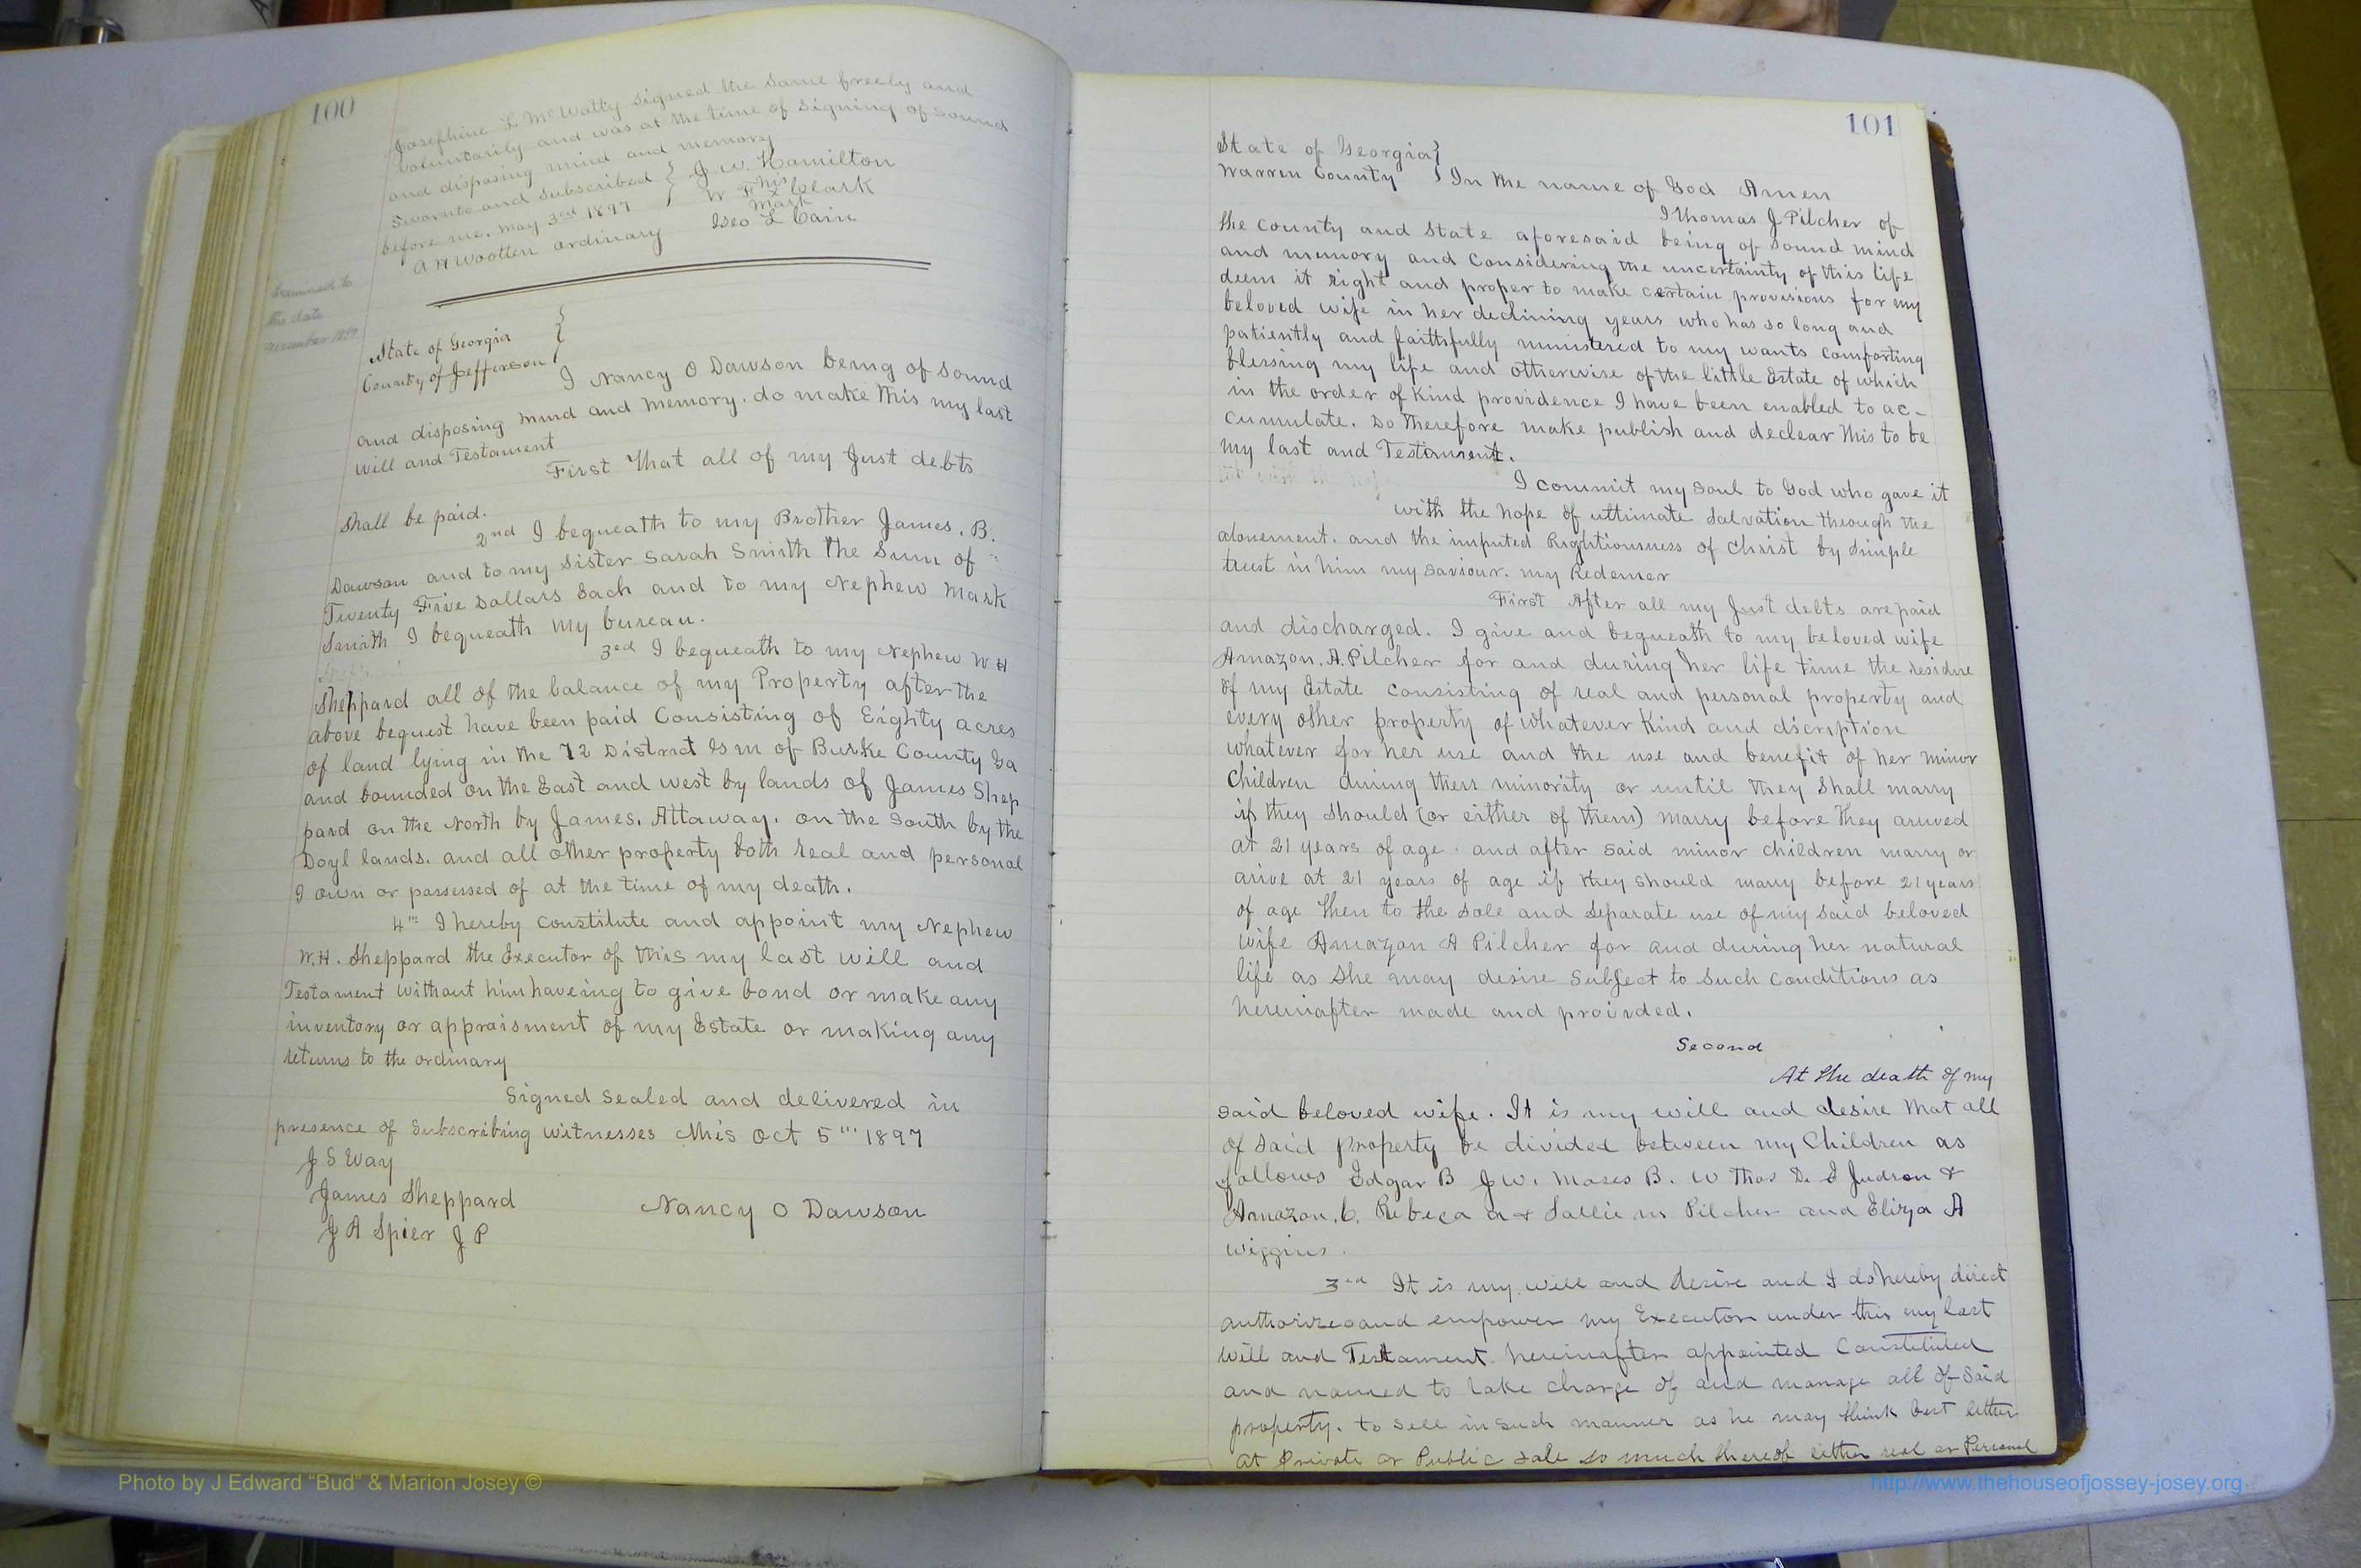 100
Josephine L McWatty signed the same freely and
voluntarily and was at the time of signing of sound
and disposing mind and memory
Swornto and subscribed } J. W. Hamilton
before me. May 3rd 1897 W F his x mark Clark
A H Wootten ordinary Geo L Cain
to
this date
1897
State of Georgia }
County of Jefferson
I Nancy O Dawson being of sound
and disposing mind and memory. do make this my last
will and Testament
First That all of my Just debts
Shall be paid.
2nd I bequeath to my Brother James. B.
Dawson and to my Sister Sarah Smith the Sum of
Twenty Five Dollars Each and to my Nephew Mark
Smith I bequeath my bureau.
3rd I bequeath to my Nephew W H
Sheppard all of the balance of my Property after the
above bequest have been paid Consisting of Eighty acres
of land lying in the 72 District G m of Burke County Ga
and bounded on the East and west by lands of James Shep
pard on the North by James. Attaway. on the South by the
Doyl lands. and all other property both real and personal
I own or possessed of at the time of my death.
4th I hereby constitute and appoint my Nephew
W. H. Sheppard the Executor of this my last will and
Testament without him haveing to give bond or make any
inventory or appraisment of my Estate or making any
returns to the ordinary
Signed sealed and delivered in
presence of Subscribing witnesses this Oct 5th 1897
J S Way
James Sheppard
Nancy O Dawson
J A Spier J P
101
State of Georgia }
Warren County } In the name of God Amen
I Thomas J Pilcher of
the County and State aforesaid being of sound mind
and memory and Considering the uncertainty of this life
deem it right and proper to make certain provisions for my
beloved wife in her declining years who has so long and
patiently and faithfully ministered to my wants comforting
blessing my life and otherwise of the little Estate of which
in the order of kind providence I have been enabled to ac-
cumulate. Do therefore make publish and declear this to be
my last and Testament.
I commit my soul to God who gave it
with the hope of ultimate salvation through the
atonement. and the imputed Rightiousness of Christ by simple
trust in him my saviour. my Redemer
First After all my Just debts are paid
and discharged. I give and bequeath to my beloved wife
Amazon. A. Pilcher for and during her life time the residue
of my Estate consisting of real and personal property and
every other property of whatever kind and discription
whatever for her use and the use and benefit of her minor
Children during thers minority or until they shall marry
if they should (or either of them) marry before they arived
at 21 years of age. and after said minor children marry or
arive at 21 years of age if they should marry before 21 years
of age then to the sole and separate use of my said beloved
wife Amazon A Pilcher for and during her natural
life as she may desire Subject to such conditions as
hereinafter made and provided.
Second
At the death of my
said beloved wife. It is my will and desire that all
of said property be divided between my Children as
follows Edgar B J W. Moses B. W Thos D. E Judson &
Amazon. C. Rebeca a & Sallie M Pilcher and Eliza A
Wiggins.
3rd It is my will and desire and I do hereby direct
authorize and empower my Executor under this my last
will and Testament hereinafter appointed Constituted
and named to take charge of and manage all of said
property. to sell in such manner as he may think best either
at Private or Public sale so much thereof either real or Personal
Photo by J Edward “Bud” & Marion Josey ©
http://www.thehouseofjossey-josey.org